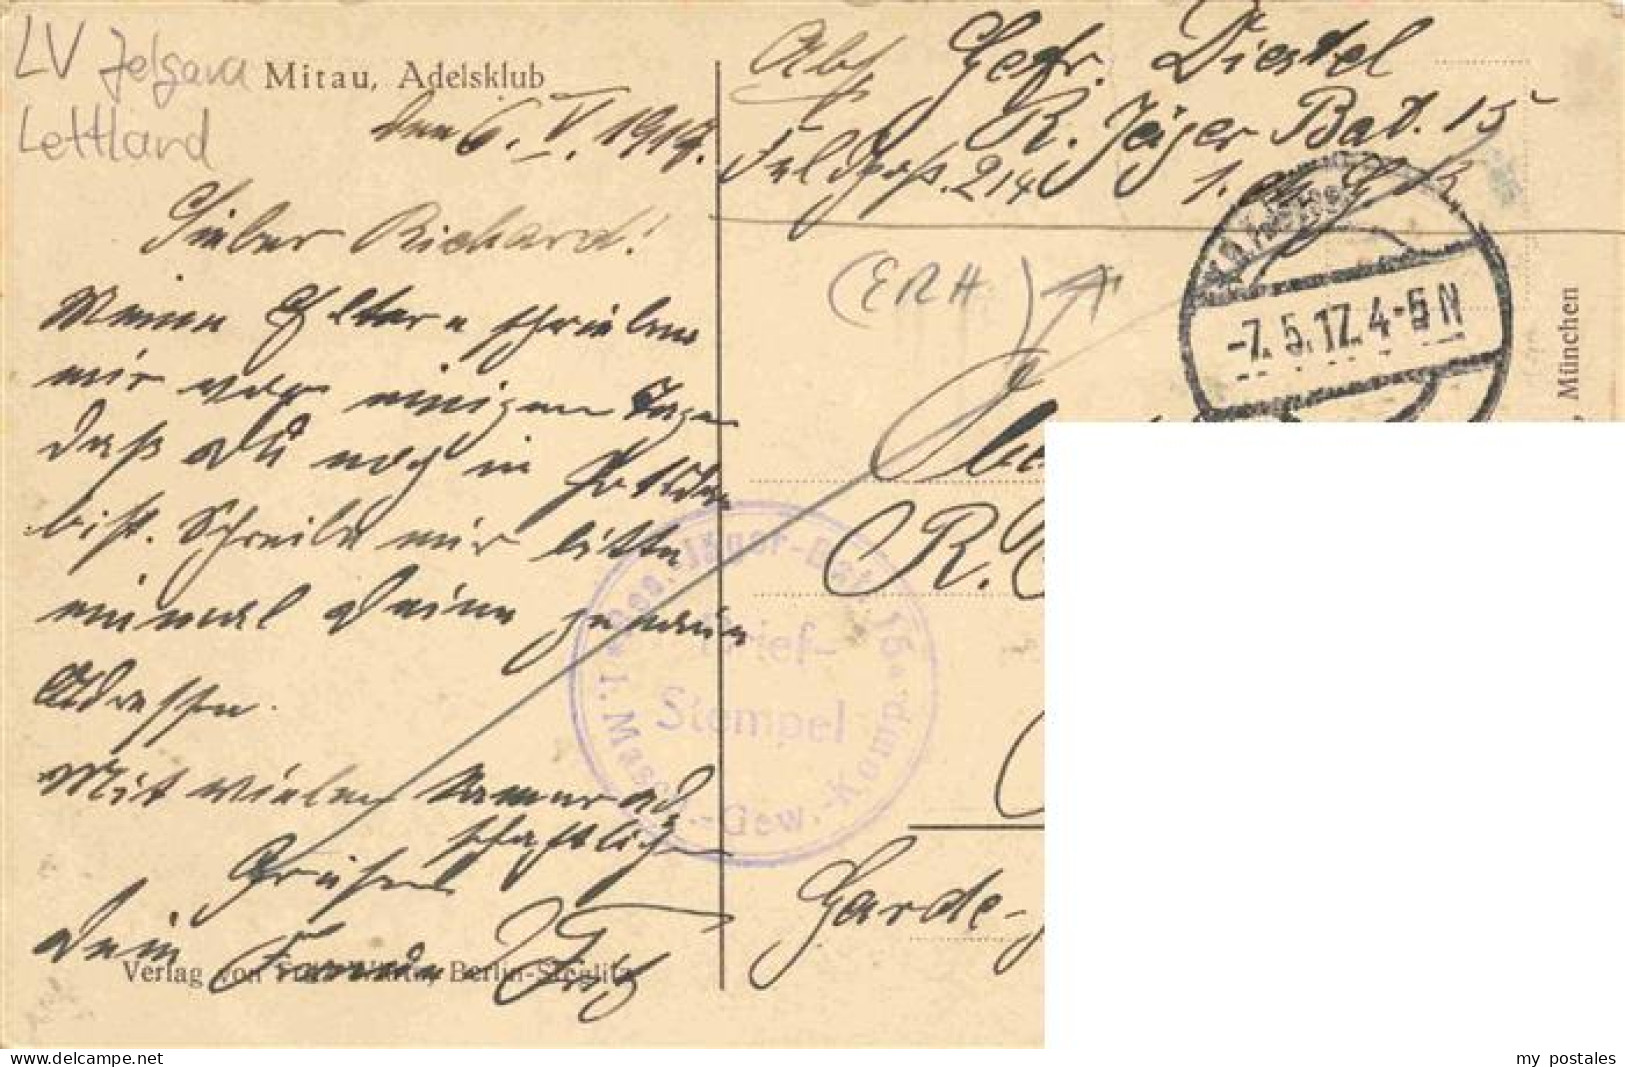 LV Jelgava
Lettland
Mitau, Adelsklub
den 6. V. 1917.
Lieber Richard!
Meine Eltern schrieben
mir vor einigen Tagen
daß Du noch in Potsdam
bist. Schreibe mir bitte
einmal Deine genaue
Adresse.
Mit vielen kamerad
schaftlichen
Grüßen
Dein Freund Fritz
Verlag von Berlin-Steglitz
Abs Gefr. Diestel
R. Jäger Bat. 15
Feldpost. 214 1. M. G. K.
(ERH)
-7.5.17. 4-5 N
, München
R.
Garde-
Res. Jäger-Bat. 15 * 1. Masch.-Gew.-Komp.
Brief-
Stempel
my postales
www.delcampe.net